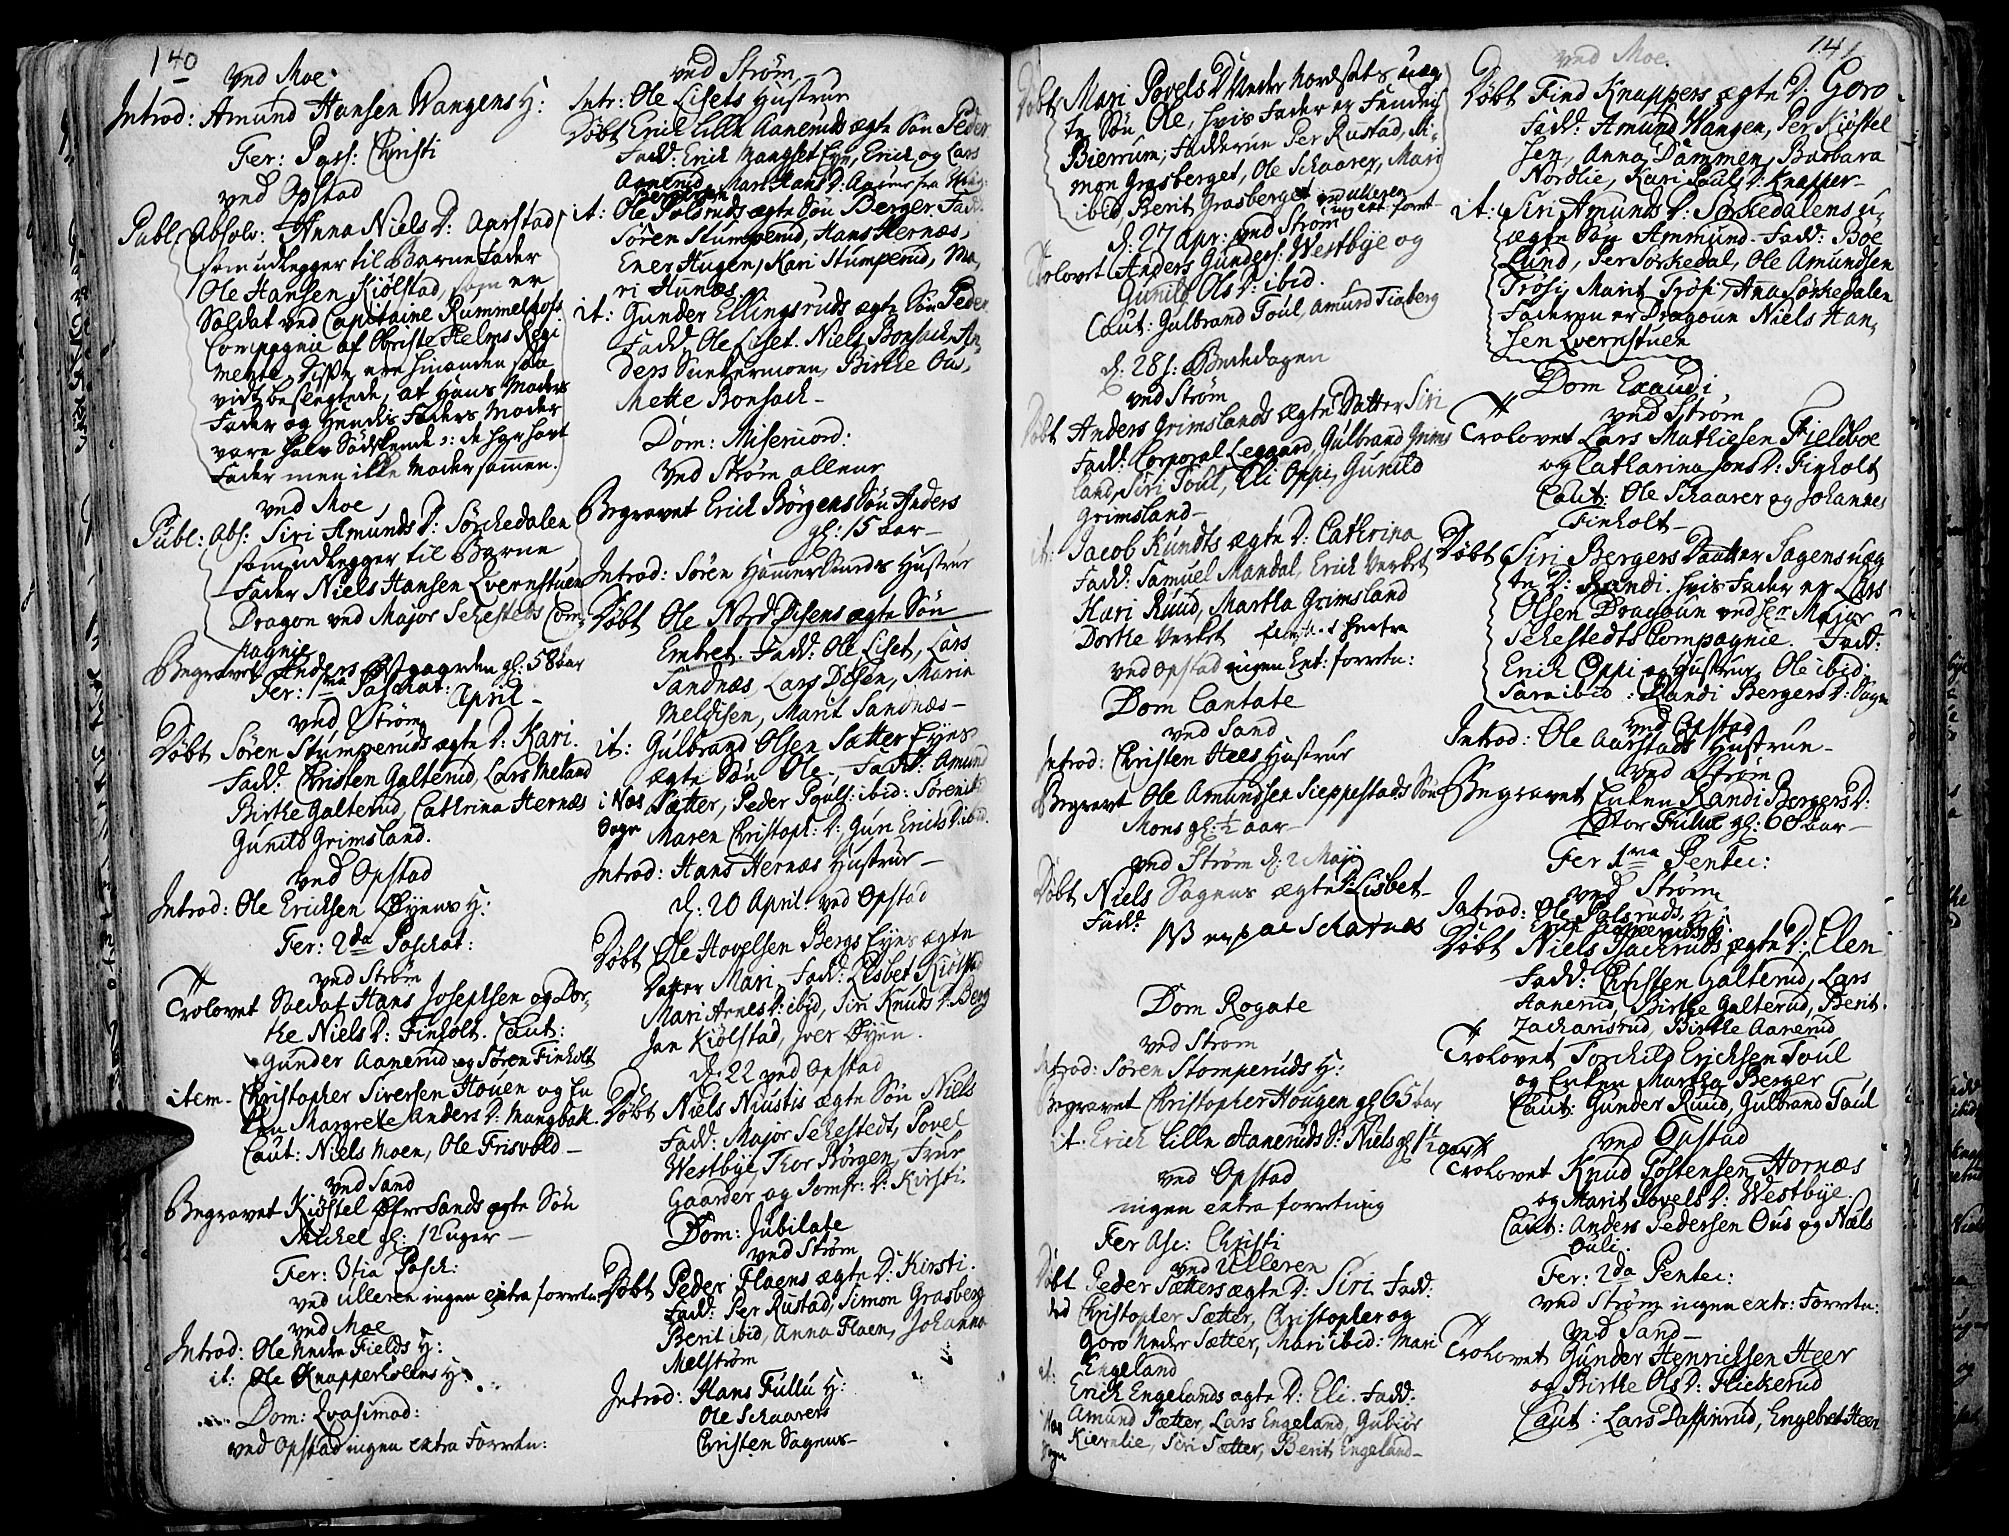 140
ved Moe
Introd: Amund Hansen Wangens H:
Fer: Pass: Christi
ved Opstad
Publ: Absolv: Anna Niels D: Aarstad
som udlegger til Barne Fader
Ole Hansen Kiölstad, som er
Soldat ved Capitaine Rummelhofs
Compagnie af Obriste Helms Regi
mente. Disse ere hinanden saa
vidt beslegtede, at Hans Moders
Fader og Hendis Faders Moder
vare halv Södskende ɔ: de har havt
Fader men ikke Moder sammen.
ved Moe
Publ: Abs: Siri Amunds D: Sörckedalen
som udlegger til Barne
Fader Niels Hansen Qvernstuen
Dragon ved Major Sehesteds Com
pagnie
Begravet Anders Östgaarden gl: 58 aar
Fer: 1ma Paschat: April
ved Ström
Döbt Sören Stumperuds ægte D: Kari.
Fadd: Christen Galterud, Lars Meland
Birthe Galterud, Cathrina Hernæs
Gunild Grimsland.
ved Opstad
Introd: Ole Ericksen Öyens H:
Fer: 2da Paschat:
ved Ström
Trolovet Soldat Hans Josephsen og Dor,
the Niels D: Finholt. Caut:
Gunder Aanerud og Sören Finholt
item Christopher Siversen Houen og En
ken Margrete Anders D: Mangbak.
Caut: Niels Moen, Ole Frisvold
ved Sand
Begravet Kiöstel Öfre Sands ægte Sön
Michel gl: 12 uger
Fer: 3tia Pasch:
ved Ulleren ingen extra forretn:
ved Moe
Introd: Ole Nedre Fields H:
it: Ole Knapperholens H:
Dom: Qvasimod:
ved Opstad ingen extra Forretn:
ved Ström
Intr: Ole Lisets Hustrue
Döbt Erich Lille Aaneruds ægte Sön Peder
Fadd: Erich Mangset Eye, Erich og Lars
Aanerud, Mari Hans D:
it: Ole Polsruds ægte Sön Berger. Fadd:
Sören Stumperud, Hans Hernæs,
Ener Hugen, Kari Stumperud, Ma,
ri Hunæs
it: Gunder Ellingsruds ægte Sön Peder
Fadd: Ole Liset. Niels Bonsach, An,
ders Suntermoen, Birthe Ous,
Mette Bonsach
Dom: Misericord:
Ved Ström allene
Begravet Erich Börgens Sön Anders
gl: 15 aar
Introd: Sören Hammersmeds Hustrue
Döbt Ole Nord Disens ægte Sön
Embret. Fadd: Ole Liset, Lars
Sandnæs, Lars Disen, Marie
Meldisen, Marit Sandnæs
it: Gulbrand Olsen Sætter Eyes
ægte Sön Ole. Fadd: Amund
i Nos Sætter, Peder Pouls: ibid: Sören
Sogn Maren Christoph: D: Gun Erichs D: ibid.
Introd: Hans Hernæs Hustrue
d: 20 April ved Opstad
Döbt Ole Hovelsen Bergs Eyes ægte
Datter Mari. Fadd: Lisbet Kiölstad
Mari Arnes D: ibid, Siri Knuds D: Berg
Jan Kiölstad, Iver Öyen.
d: 22 ved Opstad
Döbt Niels Niustis ægte Sön Niels
Fadd: Major Sehestedt, Povel
Westbye, Thor Börgen, Frue
Gaarder og Jomfr: D: Kirsti.
Dom: Jubilate
ved Ström
Döbt Peder Flaens ægte D: Kirsti.
Fadd: Per Rustad, Simon Grasberg
Berit ibid, Anna Flaen, Johanna
Melström
Introd: Hans Fullu H:
Ole Schaarers
Christen Sagens
141
Döbt Mari Povels D: Under Nordsets uæg
te Sön Ole, hvis Fader er Fendrich
Bierrum; Fadderne Per Rustad, Si,
mon Grasberget, Ole Schaarer, Mari
ibid, Berit Grasberget
ved Ulleren
ingen ext: forret
d: 27 Apr: ved Ström
Trolovet Anders Gunders: Westbye og
Gunild Ols D: ibid.
Caut: Gulbrand Toul, Amund Tiaberg
d: 28 : Bededagen
ved Ström
Döbt Anders Grimslands ægte Datter Siri
Fadd: Corporal Leggard, Gulbrand Grims
land, Siri Toul, Eli Oppi, Gunild
Grimsland
it: Jacob Kundts ægte D: Cathrina
Fadd: Samuel Mandal, Erich Verket
Kari Ruud, Martha Grimsland
Dorthe Verket
ved Opstad ingen Ext: forretn:
Dom Cantate
ved Sand
Introd: Christen Hees Hustrue
Begravet Ole Amundsen Sieppestads Sön
Mons gl: ½ aar
ved Ström d: 2 Maji
Döbt Niels Sagens ægte D: Lisbet
Fadd:
Dom Rogate
ved Ström
Introd: Sören Stomperuds H:
Begravet Christopher Hougen gl 65 aar
it: Erich Lille Aaneruds S: Niels gl: 1½ aar
ved Opstad
ingen extra forretning
Fer Asc: Christi
ved Ulleren
Döbt Peder Sætters ægte D: Siri. Fadd:
Christopher Sætter, Christopher og
Goro Neder Sætter, Mari ibid: Mari
Engeland
it: Erich Engelands ægte D: Eli. Fadd:
Nos Amund Sætter, Lars Engeland, Gubiör
Sogn Kiernlie, Siri Sætter, Berit Engeland
ved Moe.
Döbt Find Knappers ægte D: Goro
Fadd: Amund Wangen, Per Kiöstel
sen, Anna Dammen, Barbara
Nordlie, Kari Pouls D: Knapper
it: Siri Amunds D: Sörkedalens u,
ægte Sön Ammund. Fadd: Boe
Lund, Per Sörkedal, Ole Amundsen
Trösi, Marit Trösi, Ana Sörkedalen
Faderen er Dragoun Niels Han,
sen Qvernstuen
Dom Exaudi
ved Ström
Trolovet Lars Mathiesen Fieldboe
og Catharina Jons D: Finholt
Caut: Ole Schaarer og Johannes
Finholt
Döbt Siri Bergers Daatter Sagens uæg
te D: Randi. hvis Fader er Lars
Olsen Dragoun ved Hr Major
Sehestedts Compagnie. Fadd:
Erich Oppi og Hustrue, Ole ibid:
Sara ibid: Randi Bergers D: Sagen
ved Opstad
Introd: Ole Aarstads Hustrue
ved Ström
Begravet Enken Randi Bergers D:
Stor Fullu gl: 60 aar
Fer 1ma Pentec:
ved Ström
Introd: Ole Polsruds H:
Erich Aaneruds H:
Döbt Niels Sachruds ægte D: Elen
Fadd: Christen Galterud, Lars
Aanerud, Birthe Galterud, Berit
Zacharisrud, Birthe Aanerud
Trolovet Torchild Ericksen Toul
og Enken Martha Berger
Caut: Gunder Ruud, Gulbrand Toul
ved Opstad
Trolovet Knud Tostensen Hornæs
og Marit Povels D: Westbye
Caut: Anders Pedersen Ous og Niels
Ouli.
Fer: 2da Pentec:
ved Ström ingen extr: Forretn:
ved Sand
Trolovet Gunder Henricksen Heer
og Birthe Ols D: Flickerud
Caut: Lars Daffinrud, Engebret Heer